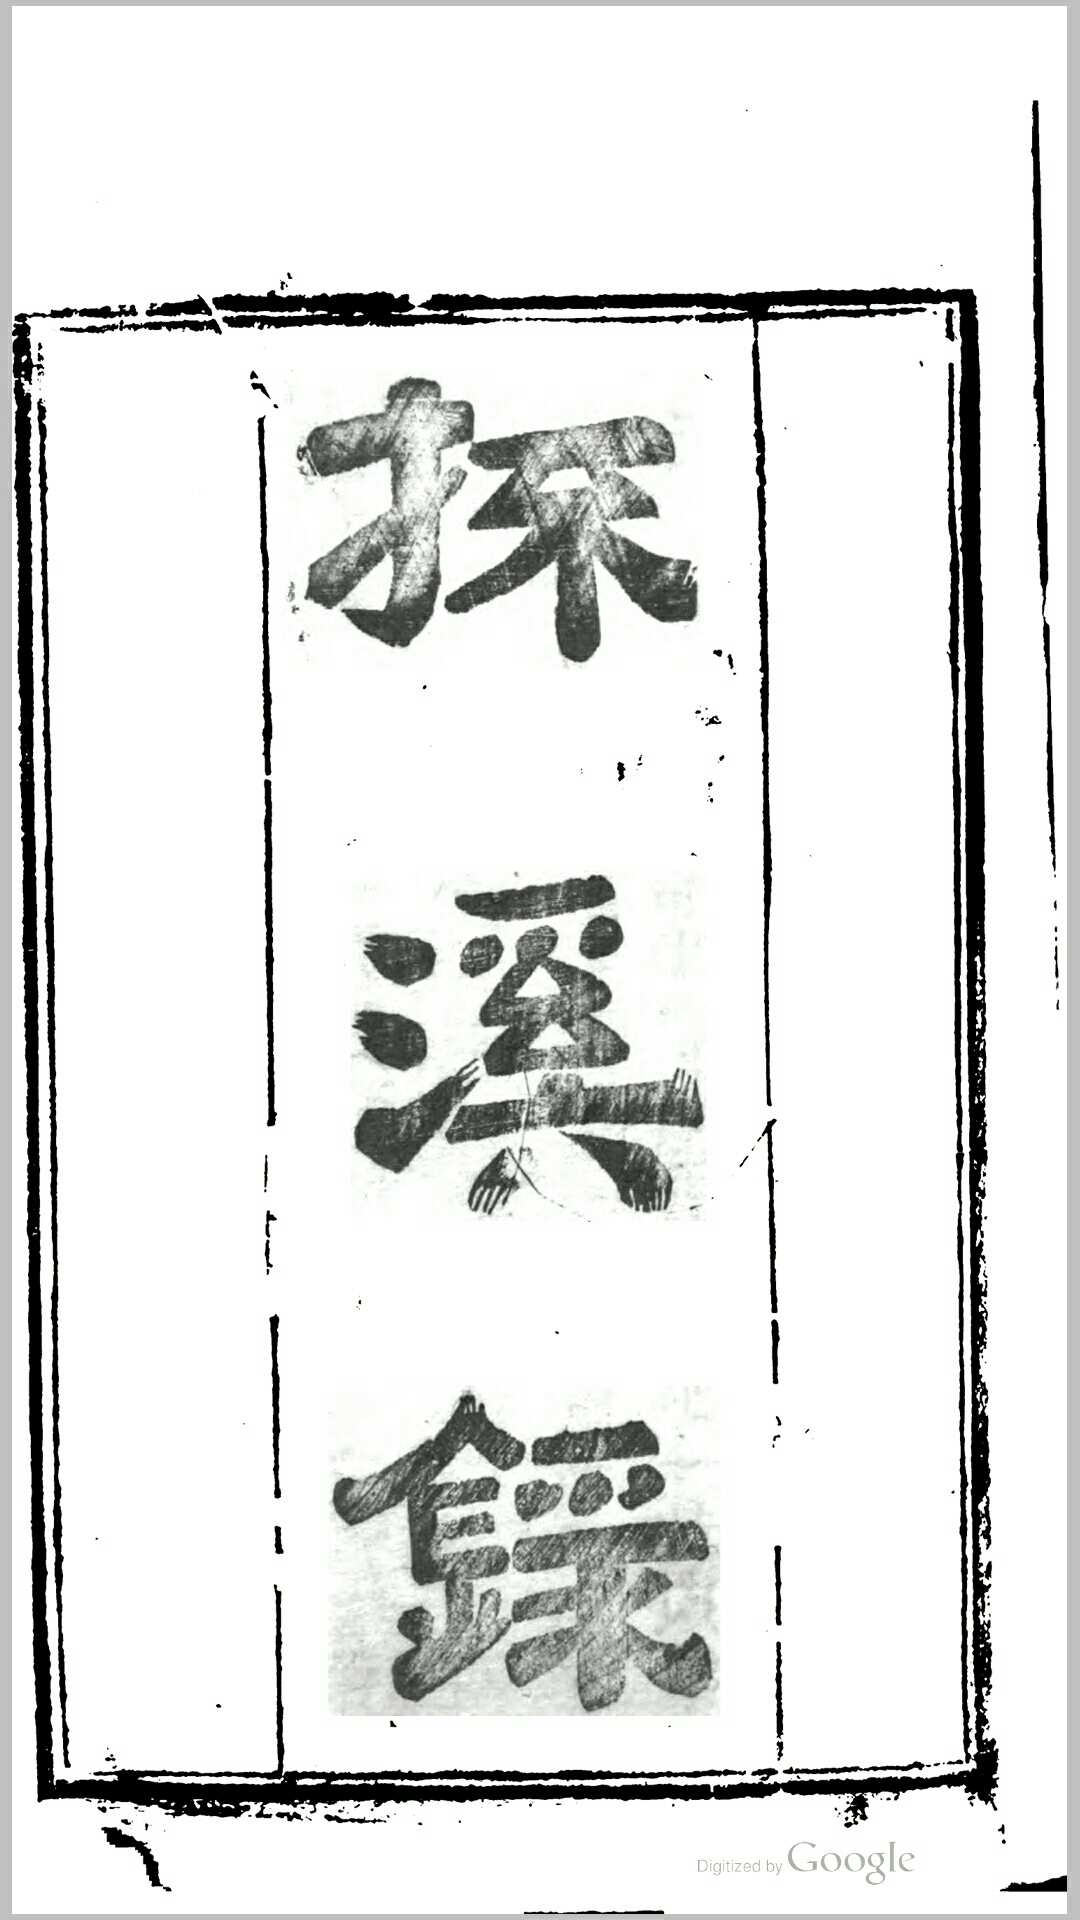 採溪錄
Digitized by Google